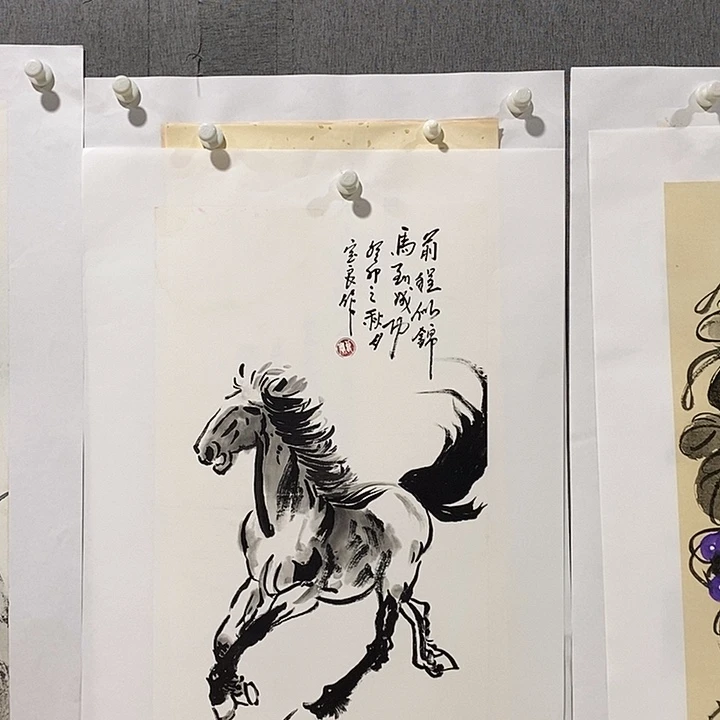 前程似錦
馬到成功
癸卯之秋月
宝良作